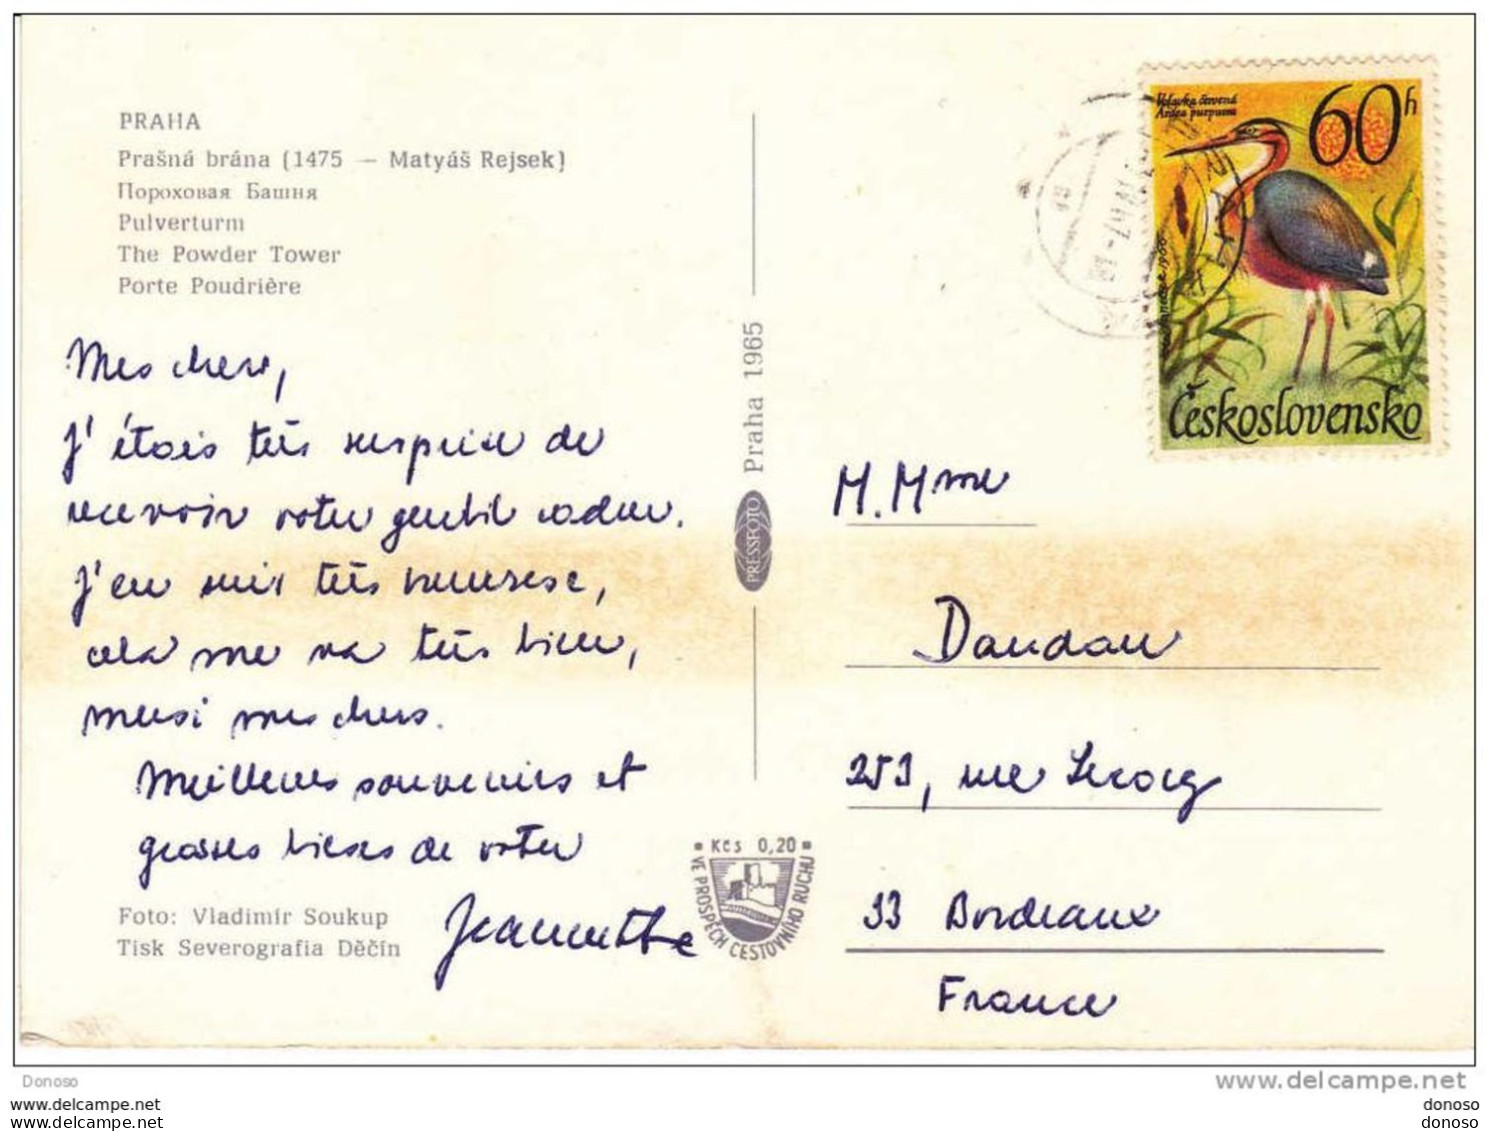 PRAHA
Prašná brána (1475 — Matyáš Rejsek)
Пороховая Башня
Pulverturm
The Powder Tower
Porte Poudrière
Mes chers,
j'étais très surprise de
recevoir votre gentil cadeau.
J'en suis très heureuse,
cela me va très bien,
mersi mes chers.
Meilleures souvenirs et
grosses bises de votre
Jeannette
Foto: Vladimír Soukup
Tisk Severografia Děčín
Praha 1965
PRESSFOTO
Kčs 0,20
VE PROSPĚCH CESTOVNÍHO RUCHU
Volavka červená
Ardea purpurea
60h
Československo
M. Mme
Dandau
253, rue
33 Bordeaux
France
Donoso
www.delcampe.net
donoso
donoso
donoso
donoso